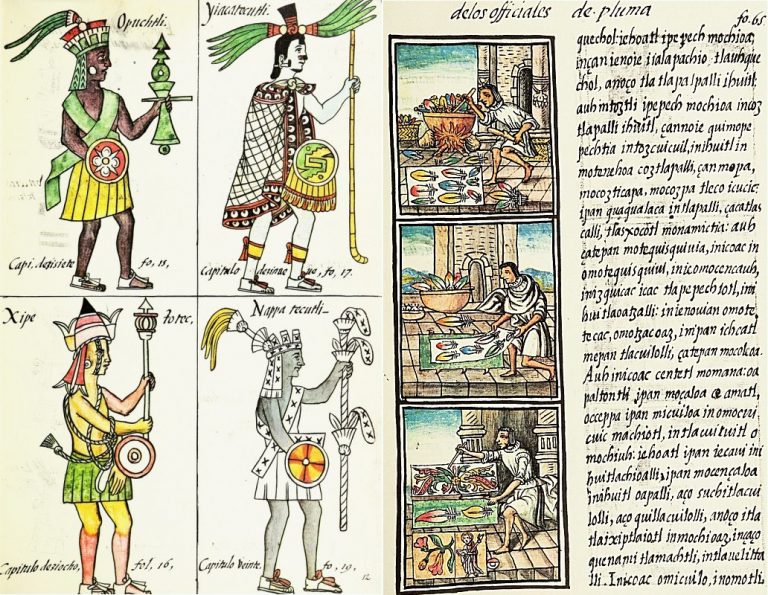 Opuchtli.
Capi, desisiete fo. 15,
Yiacatecutli.
capitulo fo, 17.
Xipe totec,
Capitulo desiocho, fol, 16,
Nappa tecutli
Capitulo veinte. fo, 19,
12
delos officiales de pluma
fo. 65
quechol: iehoatl ipepech mochioa,
incanienoie iialapachio tlauhque
chol, anoço tlatlapalpalli ihuitl,
auh intoztli ipepech mochioa incoz
tlapalli ihuitl, çannoie quimope
pechtia intozcuicuil, inihuitl in
motenehoa coztlapalli, çan mopa,
mocozticapa, mocozpa tleco icucic:
ipan quaqualaca intlapalli, çacatlas
calli, tlalxocotl monamictia: auh
çatepan motequisquivia, inicoac in
omotequisquiui, inicomocencauh,
inizquicac icac tlapepechtotl, ini
huitlaoatzalli: inienouian omote
tecac, omotzacoaz, inipan ichcatl
mepan tlacuilolli, çatepan mocolcoa.
Auh inicoac centetl momana: oa
paltontli ipan moçaloa amatl,
occeppa ipan micuiloa in omocui
cuic machiotl, intlacuilulli o
mochiuh: iehoatl ipan iecaui ini
huitlachioalli, ipan mocençaloa
inihuitl oapalli, aço suchitlacui
lolli, aço quillacuilolli, anoço itla
tlaixiptlaiotl inmochioaz, inçaço
quenami tlamachtli, intlauelitta
lli. Inicoac omicuilo, inomotli